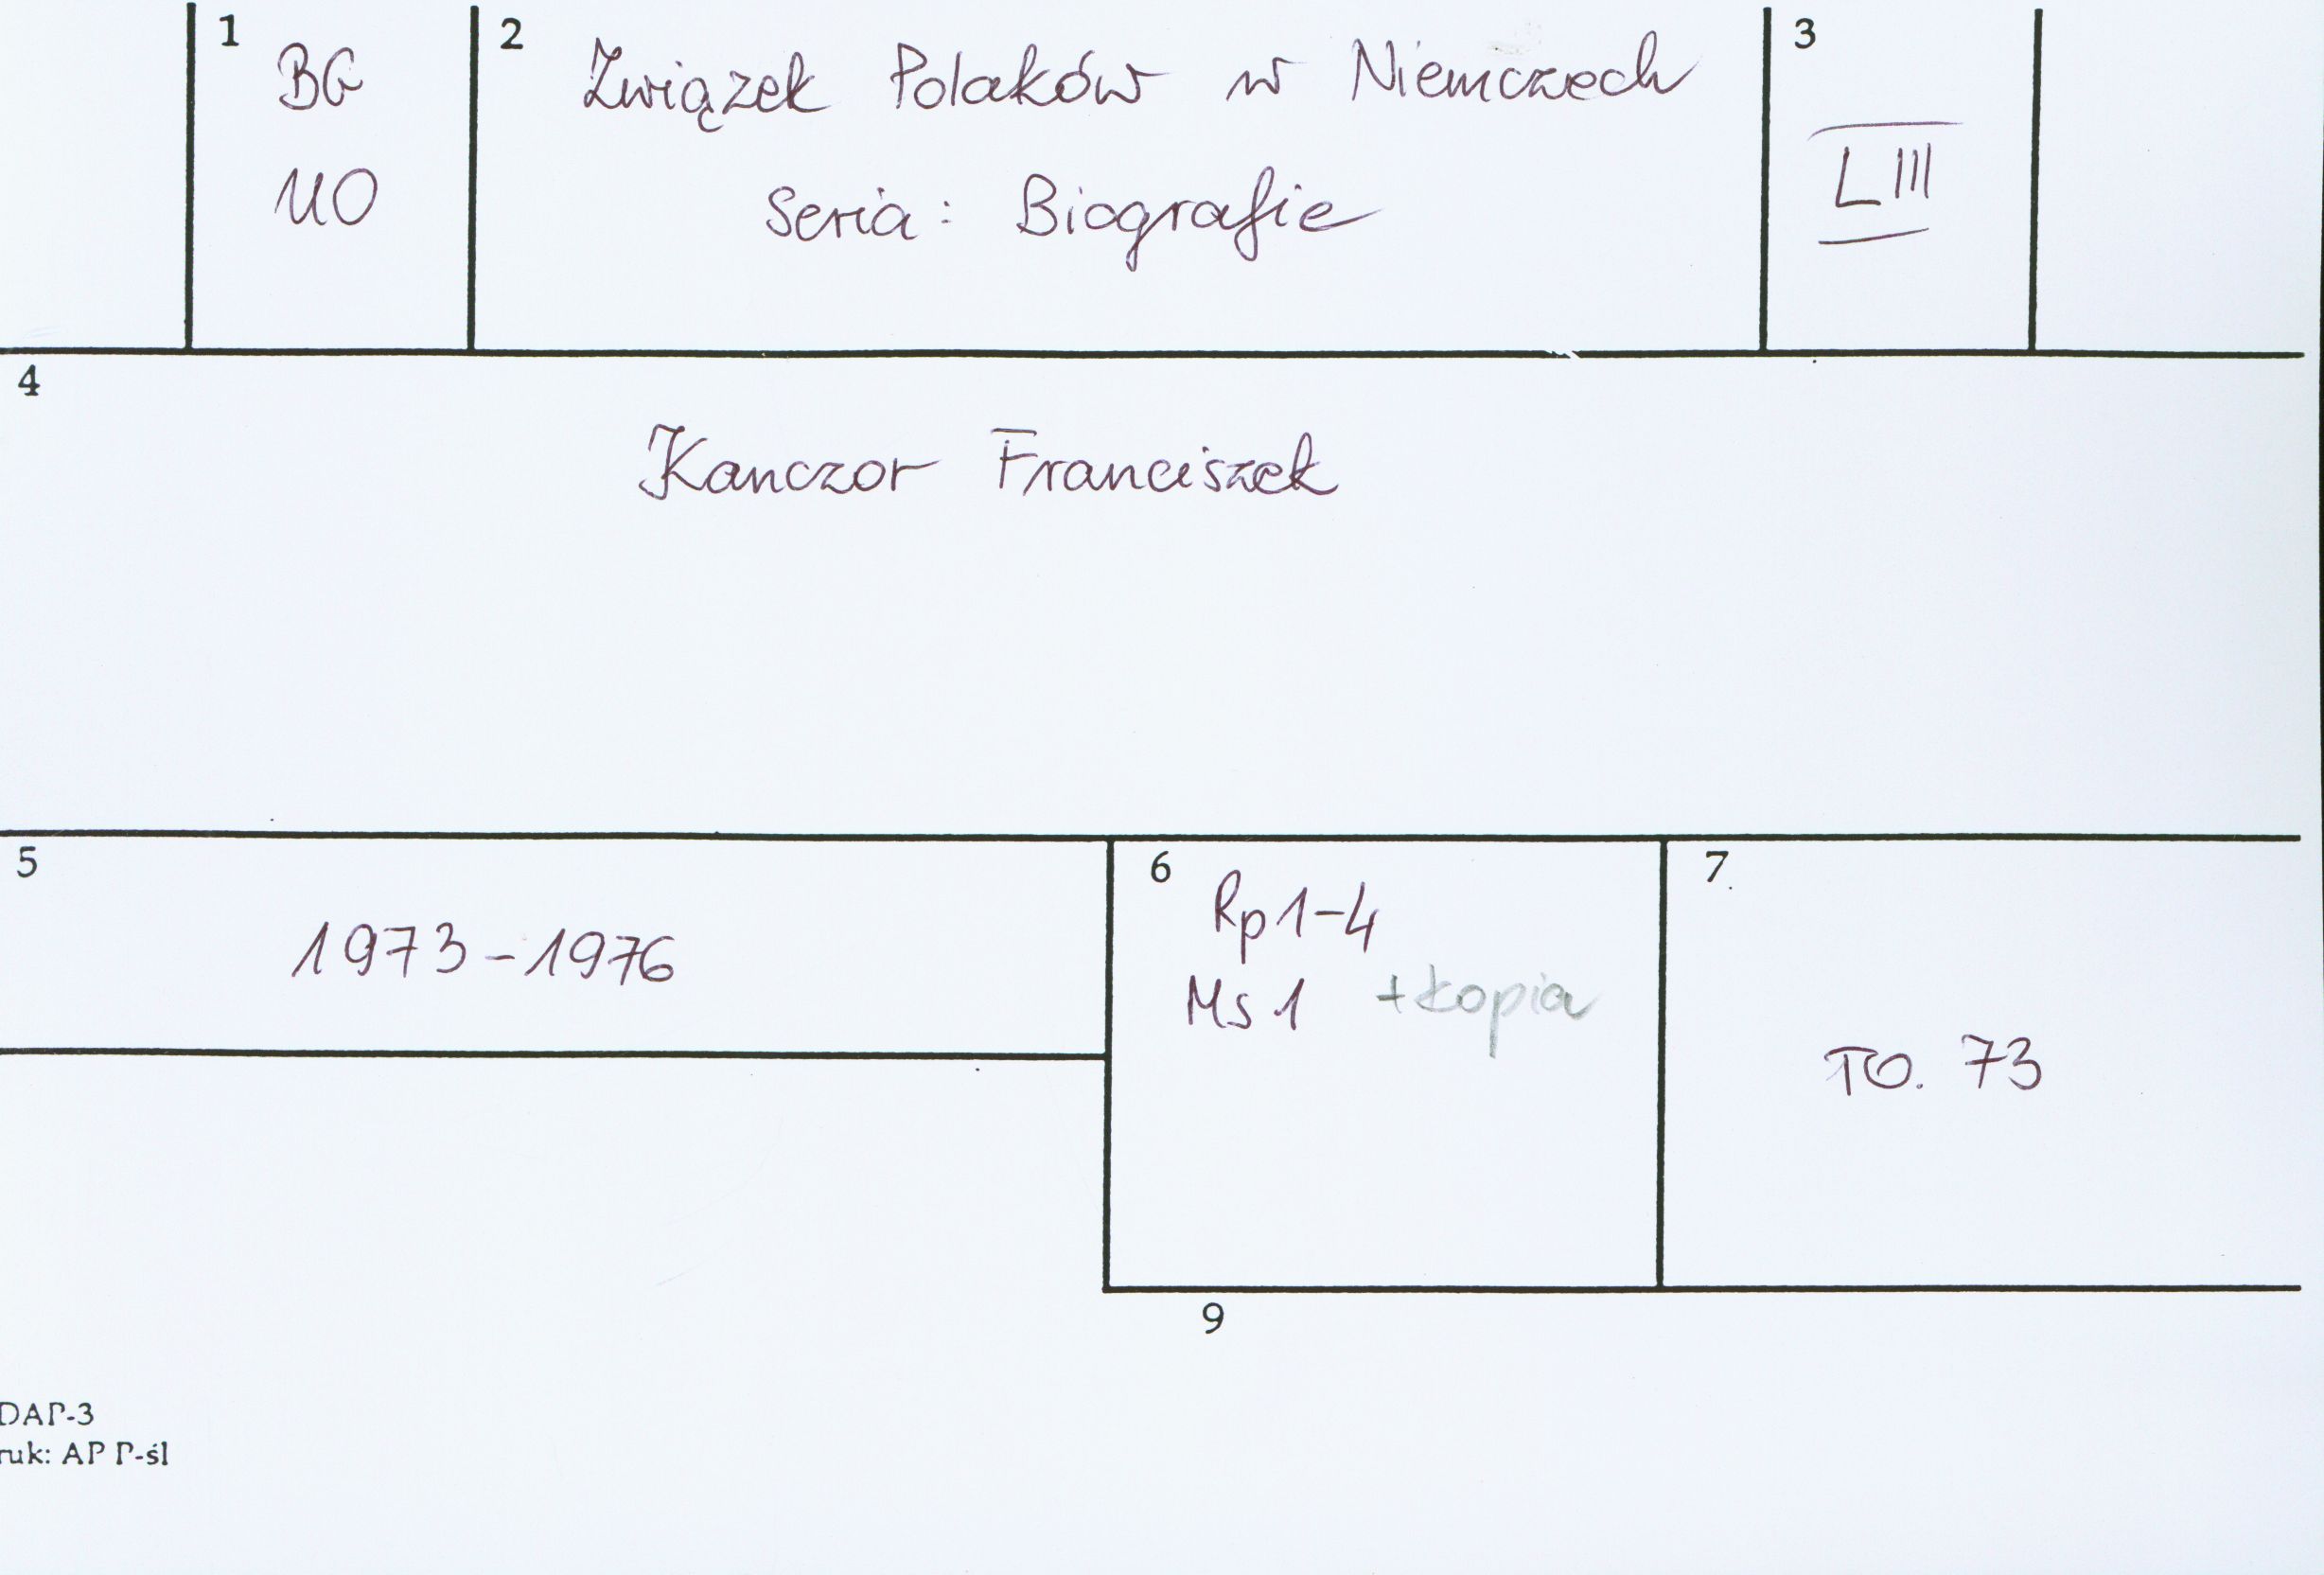 1
BG
UO
2
Związek Polaków w Niemczech
Seria: Biografie
3
LIII
4
Kanczor Franciszek
5
1973-1976
6
Rp 1-4
Ms 1 +kopia
7.
TO. 73
9
DAP-3
ruk: AP P-śl